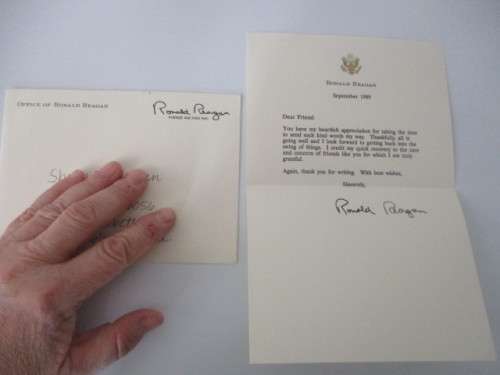 OFFICE OF RONALD REAGAN
Ronald Reagan
RONALD REAGAN
September 1989
Dear Friend:
You have my heartfelt appreciation for taking the time
to send such kind words my way. Thankfully, all is
going well and I look forward to getting back into the
swing of things. I credit my quick recovery to the care
and concern of friends like you for which I am truly
grateful.
Again, thank you for writing. With best wishes,
Sincerely,
Ronald Reagan